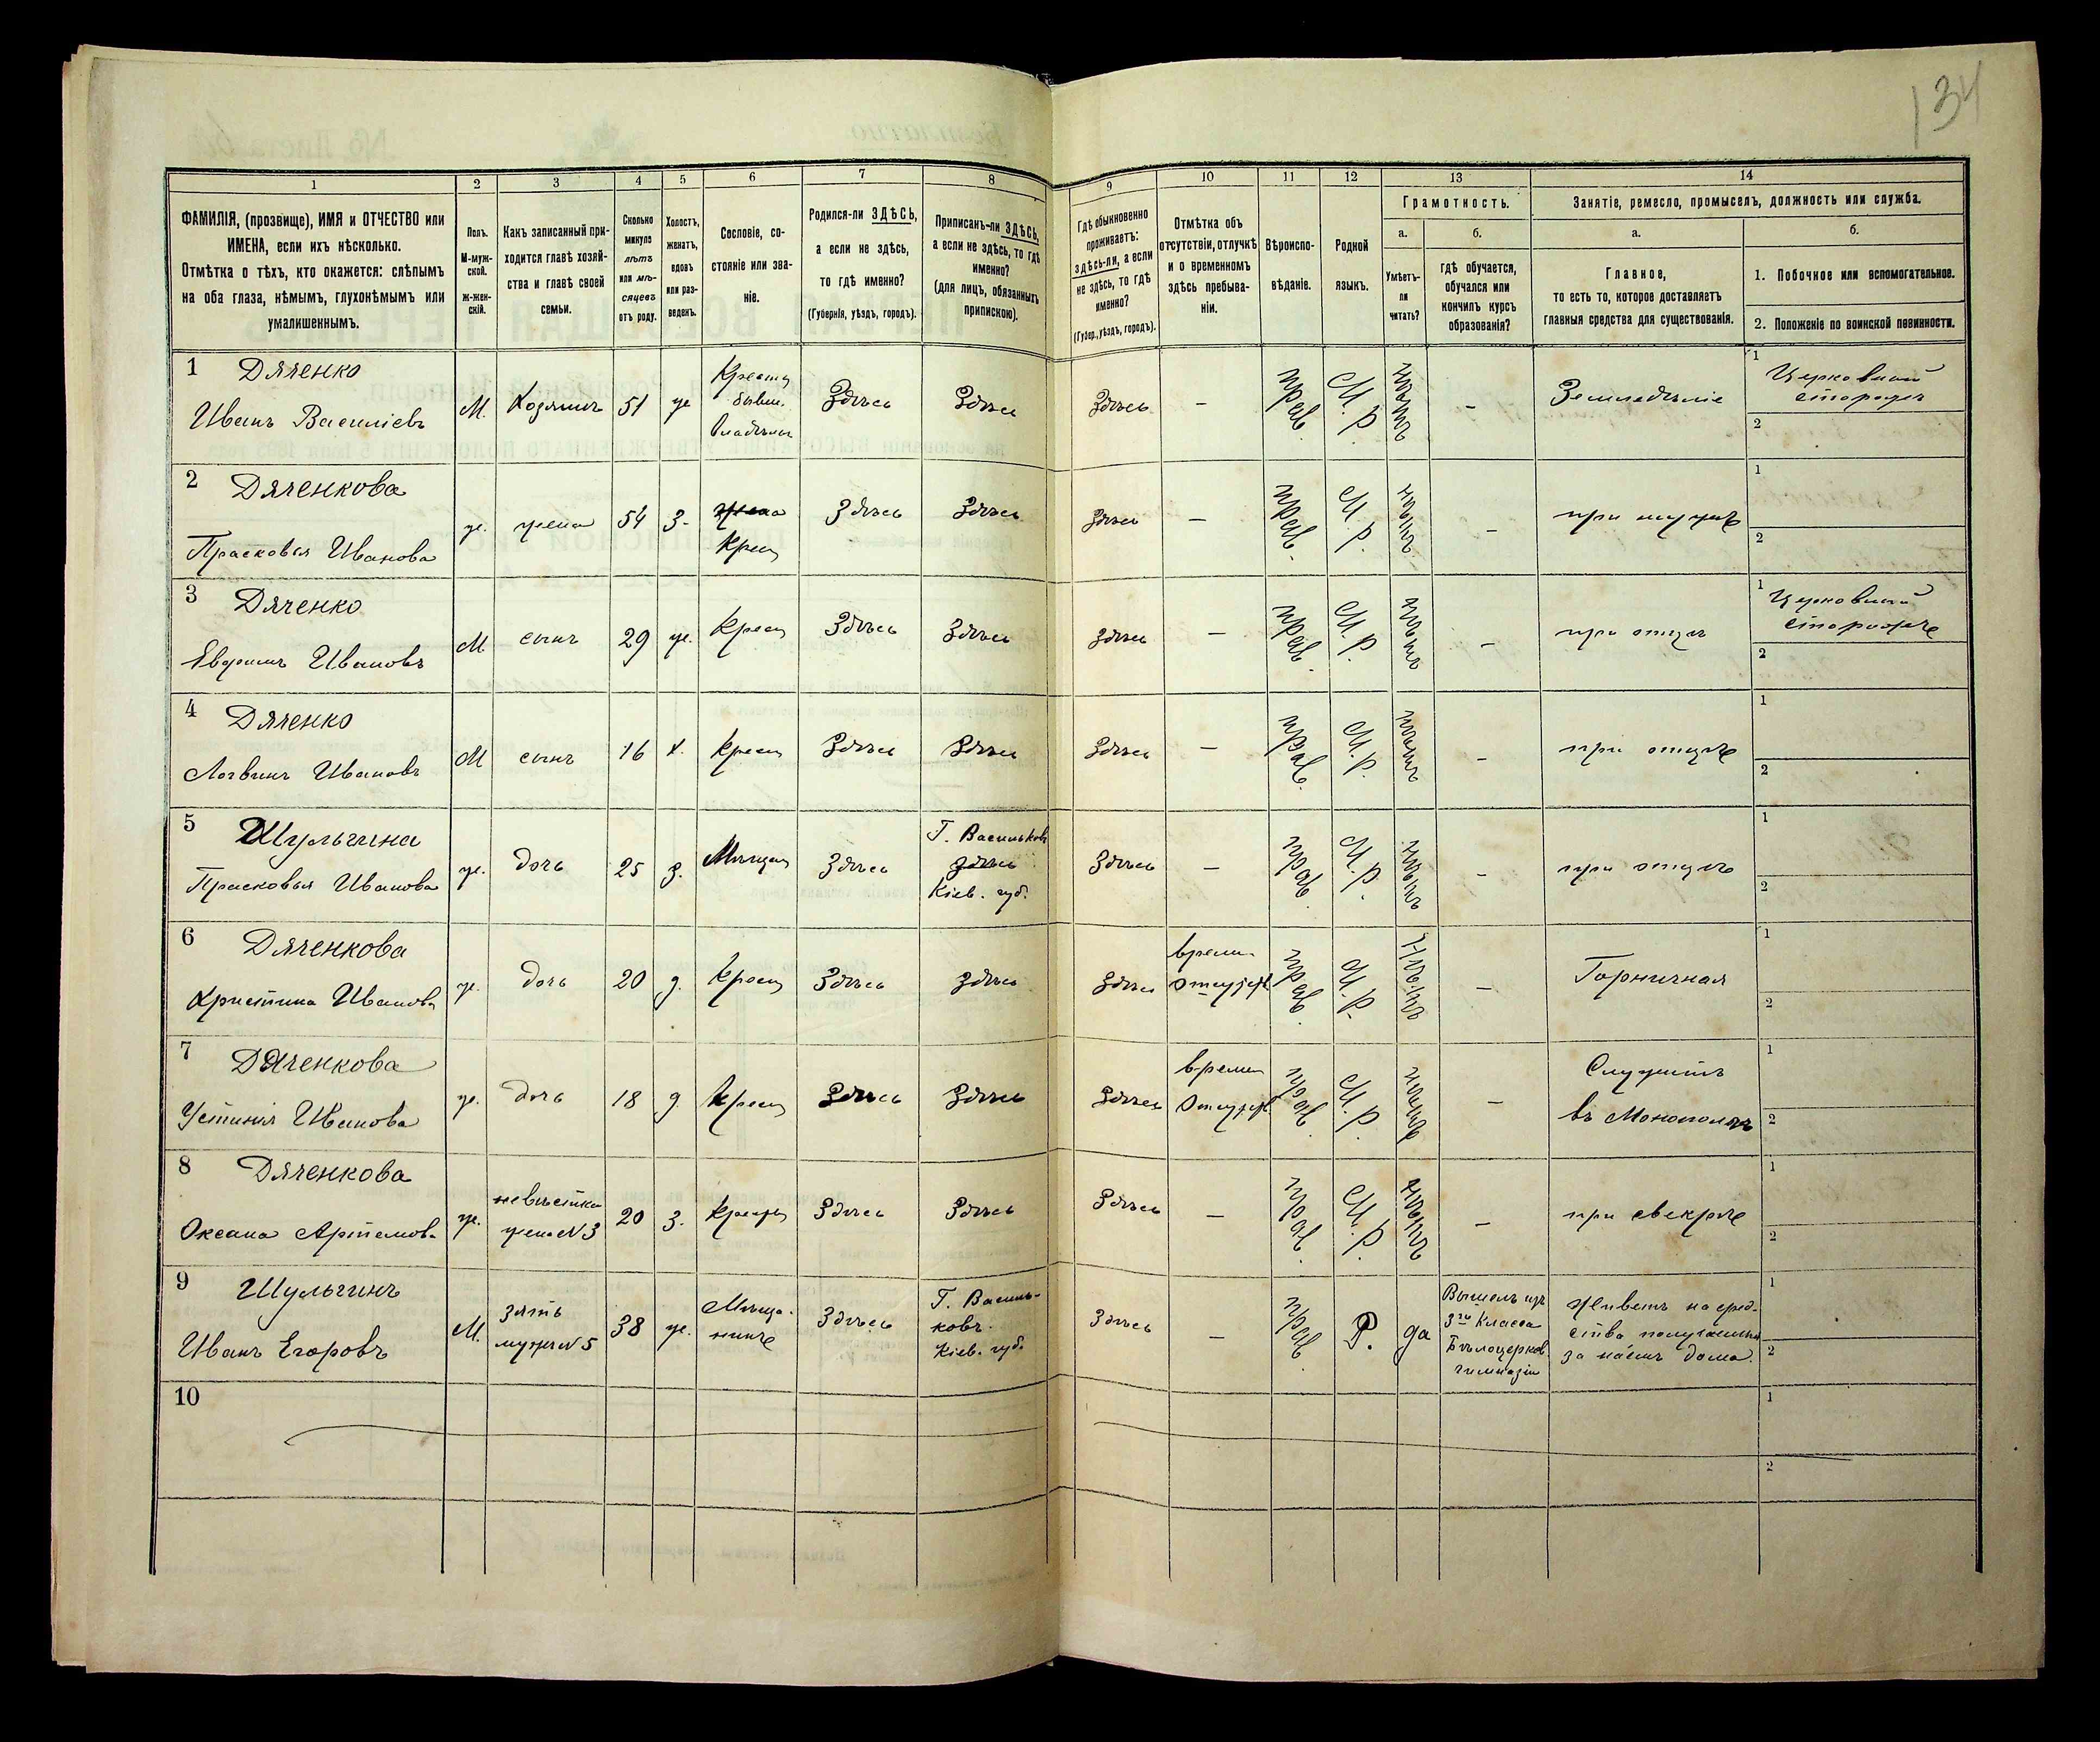 134
1 2 3 4 5 6 7 8 9 10 11 12 13 14
ФАМИЛІЯ, (прозвище), ИМЯ и ОТЧЕСТВО или
ИМЕНА, если ихъ нѣсколько.
Отмѣтка о тѣхъ, кто окажется: слѣпымъ
на оба глаза, нѣмымъ, глухонѣмымъ или
умалишеннымъ.
Полъ.
М-муж-
ской.
Ж-жен-
скій.
Какъ записанный при-
ходится главѣ хозяй-
ства и главѣ своей
семьи.
Сколько
минуло
лѣтъ
или мѣ-
сяцевъ
отъ роду.
Холостъ,
женатъ,
вдовъ
или раз-
веденъ.
Сословіе, со-
стояніе или зва-
ніе.
Родился-ли ЗДѢСЬ,
а если не здѣсь,
то гдѣ именно?
(Губернія, уѣздъ, городъ).
Приписанъ-ли ЗДѢСЬ,
а если не здѣсь, то гдѣ
именно?
(для лицъ, обязанныхъ
припискою).
Гдѣ обыкновенно
проживаетъ:
здѣсь-ли, а если
не здѣсь, то гдѣ
именно?
(Губер., уѣздъ, городъ).
Отмѣтка объ
отсутствіи, отлучкѣ
и о временномъ
здѣсь пребыва-
ніи.
Вѣроиспо-
вѣданіе.
Родной
языкъ.
Грамотность.
а.
Умѣетъ-
ли
читать?
б.
гдѣ обучается,
обучался или
кончилъ курсъ
образованія?
Занятіе, ремесло, промыселъ, должность или служба.
а.
Главное,
то есть то, которое доставляетъ
главныя средства для существованія.
б.
1. Побочное или вспомогательное.
2. Положеніе по воинской повинности.
1 Дяченко
Иванъ Васильевъ
М. Хозяинъ 51 же
Крестц
бывш.
Владѣльч
Здѣсь Здѣсь Здѣсь — прав. М.Р. нѣтъ — Земледѣліе
1 Церковный
сторожъ
2
2 Дяченкова
Прасковья Иванова
же. жена 54 з. жена
Крец
Здѣсь Здѣсь Здѣсь — прав. М.Р. нѣтъ — при мужѣ
1
2
3 Дяченко
Евфимъ Ивановъ
М сынъ 29 же. Крец Здѣсь Здѣсь Здѣсь — прав. М.Р. нѣтъ — при отцѣ
1 Церковный
сторожъ
2
4 Дяченко
Логвинъ Ивановъ
М сынъ 16 х. Крец Здѣсь Здѣсь Здѣсь — прав. М.Р. нѣтъ — при отцѣ
1
2
5 Шульгина
Прасковья Иванова
же. дочь 25 з. Мѣщан Здѣсь
Г. Васильковъ
здѣсь
Кіев. губ.
Здѣсь — прав. М.Р. нѣтъ — при отцѣ
1
2
6 Дяченкова
Христина Иванова
же. дочь 20 д. Крец Здѣсь здѣсь Здѣсь
времен
отсутст
прав. М.Р. нѣтъ — Горничная
1
2
7 Дяченкова
Устинія Иванова
же. дочь 18 д. Крец Здѣсь Здѣсь Здѣсь
времен
отсутст
прав. М.Р. нѣтъ —
Служитъ
въ Монополіи
1
2
8 Дяченкова
Оксана Артемова
же.
невѣстка
жена N 3
20 з. Крец Здѣсь Здѣсь Здѣсь — прав. М.Р. нѣтъ — при свекрѣ
1
2
9 Шульгинъ
Иванъ Егоровъ
М.
зять
мужъ N 5
38 же.
Мѣща-
нинъ
Здѣсь
Г. Василь-
ковъ.
Кіев. губ.
Здѣсь — прав. Р. да
Вышелъ изъ
3го Класса
Бѣлоцерков
гимназіи
Живетъ на сред-
ства получаемыя
за наемъ дома.
1
2
10
1
2